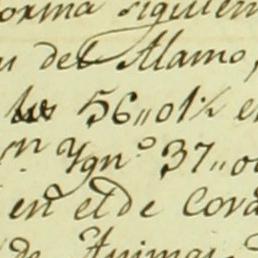 forma siguien
u del Alamo,
los 56,,01½ e
n Ygn.º 37,,0
en el de Cova
de Animas